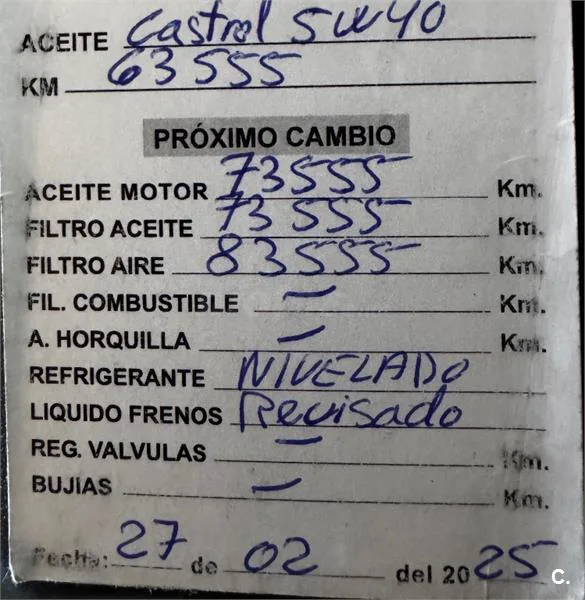 ACEITE Castrol 5W40
KM 63555
PRÓXIMO CAMBIO
ACEITE MOTOR 73555 Km.
FILTRO ACEITE 73555 Km.
FILTRO AIRE 83555 Km.
FIL. COMBUSTIBLE — Km.
A. HORQUILLA — Km.
REFRIGERANTE NIVELADO
LIQUIDO FRENOS Revisado
REG. VALVULAS — Km.
BUJÍAS — Km.
Fecha: 27 de 02 del 2025
C.